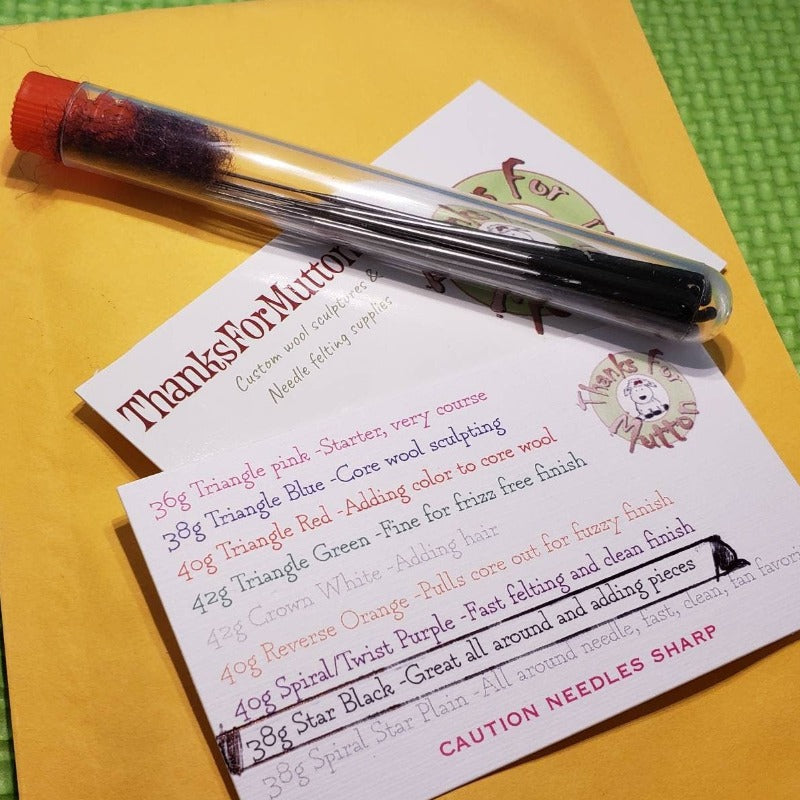 ThanksForMutton
Custom wool sculptures &
Needle felting supplies
Thanks For
Mutton
36g Triangle pink -Starter, very course
38g Triangle Blue -Core wool sculpting
40g Triangle Red -Adding color to core wool
42g Triangle Green -Fine for frizz free finish
42g Crown White -Adding hair
40g Reverse Orange -Pulls core out for fuzzy finish
40g Spiral/Twist Purple -Fast felting and clean finish
38g Star Black -Great all around and adding pieces
38g Spiral Star Plain -All around needle, fast, clean, fan
CAUTION NEEDLES SHARP